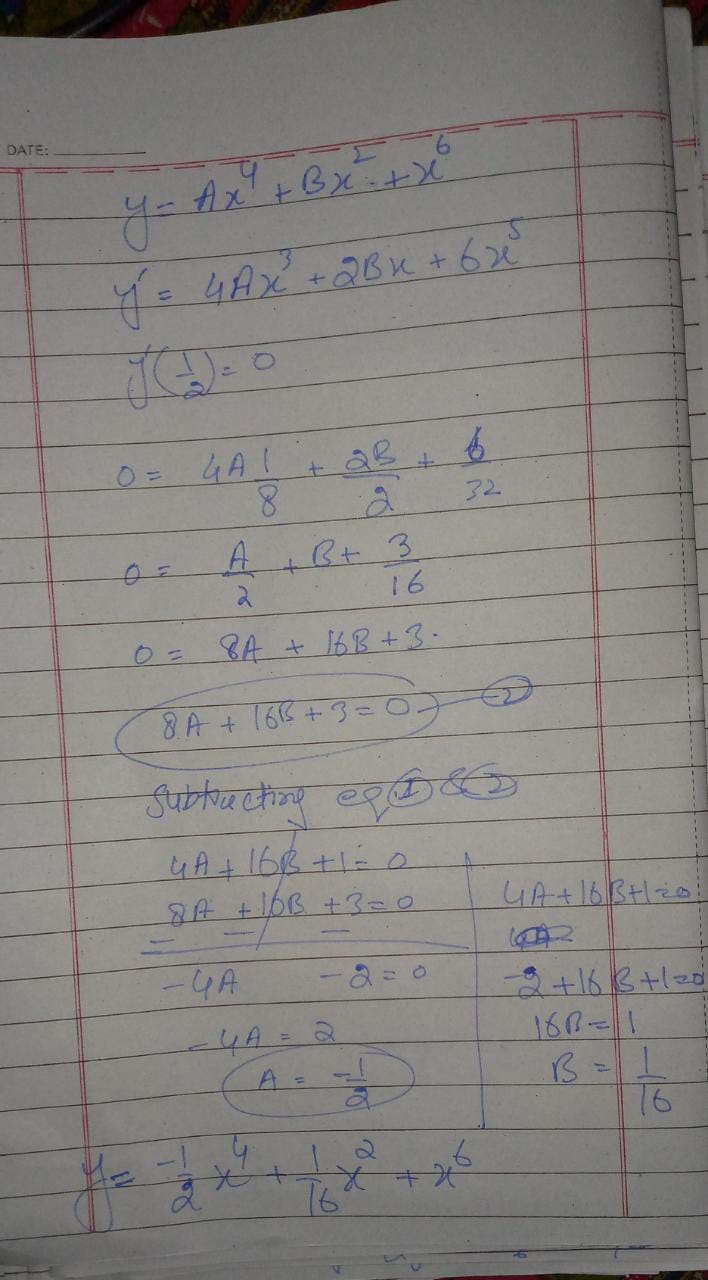 DATE:
y = Ax⁴ + Bx² + x⁶
y' = 4Ax³ + 2Bx + 6x⁵
y'(1/2) = 0
0 = 4A 1/8 + 2B/2 + 6/32
0 = A/2 + B + 3/16
0 = 8A + 16B + 3.
8A + 16B + 3 = 0 — ②
Subtracting eq ① & ②
4A + 16B + 1 = 0
8A + 16B + 3 = 0
− − −
-4A -2 = 0
-4A = 2
A = -1/2
4A + 16B + 1 = 0
-2 + 16B + 1 = 0
16B = 1
B = 1/16
y = -1/2 x⁴ + 1/16 x² + x⁶